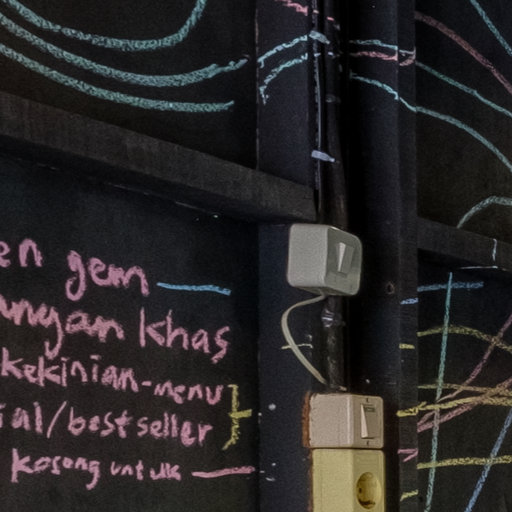 en gem
ngan khas
kekinian-menu
ial/best seller
kosong untuk